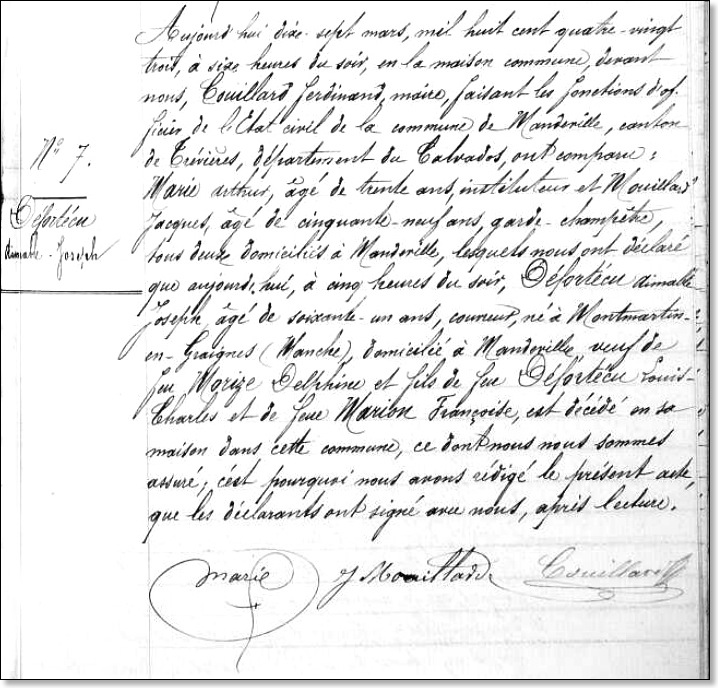 Aujourd'hui dixe-sept mars, mil huit cent quatre-vingt
trois, à six heures du soir, en la maison commune, devant
nous, Couillard Ferdinand, maire, faisant les fonctions d'of
ficier de l'Etat civil de la commune de Mandeville, canton
de Trévières, département du Calvados, ont comparu :
Marie arthur, âgé de trente ans, instituteur et Mouillard
Jacques, âgé de cinquante-neuf ans, garde-champêtre,
tous deux domiciliés à Mandeville, lesquels nous ont déclaré
que aujourd'hui, à cinq heures du soir, Défortécu aimable
Joseph, âgé de soixante-un ans, couvreur, né à Montmartin-
en-Graignes (Manche), domicilié à Mandeville veuf de
feu Morize Delphine et fils de feu Défortécu Louis-
Charles et de feue Marion Françoise, est décédé en sa
maison dans cette commune, ce dont nous nous sommes
assuré ; c'est pourquoi nous avons rédigé le présent acte,
que les déclarants ont signé avec nous, après lecture.
N° 7.
Défortécu
aimable-Joseph
Marie J Mouillard Couillard